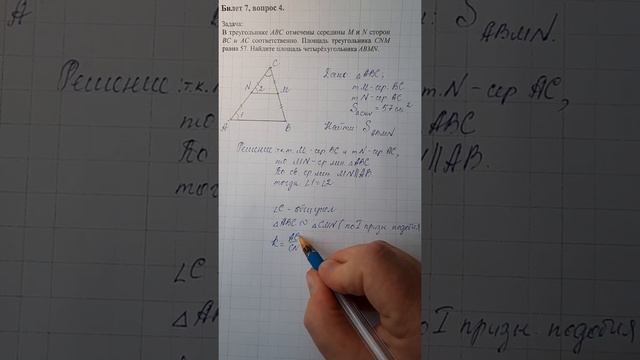 Билет 7, вопрос 4.
Задача:
В треугольнике ABC отмечены середины M и N сторон
BC и AC соответственно. Площадь треугольника CNM
равна 57. Найдите площадь четырёхугольника ABMN.
Дано: △ABC,
т.M - сер. BC
т.N - сер AC
S△CMN = 57 см²
Найти: S ABMN
C
N 2 M
1
A B
Решение: т.к т. M - сер BC и т. N - сер AC,
то MN - ср. лин △ABC
По св. ср. лин MN || AB.
тогда ∠1 = ∠2
∠C - общий
△ABC ∾ △CMN (по I призн. подобия
k = AC
CN
S ABMN
Решение : т.к.
т. N - сер AC,
то
ABC
По св
N || AB.
тог
∠C
△A
по I призн. подобия